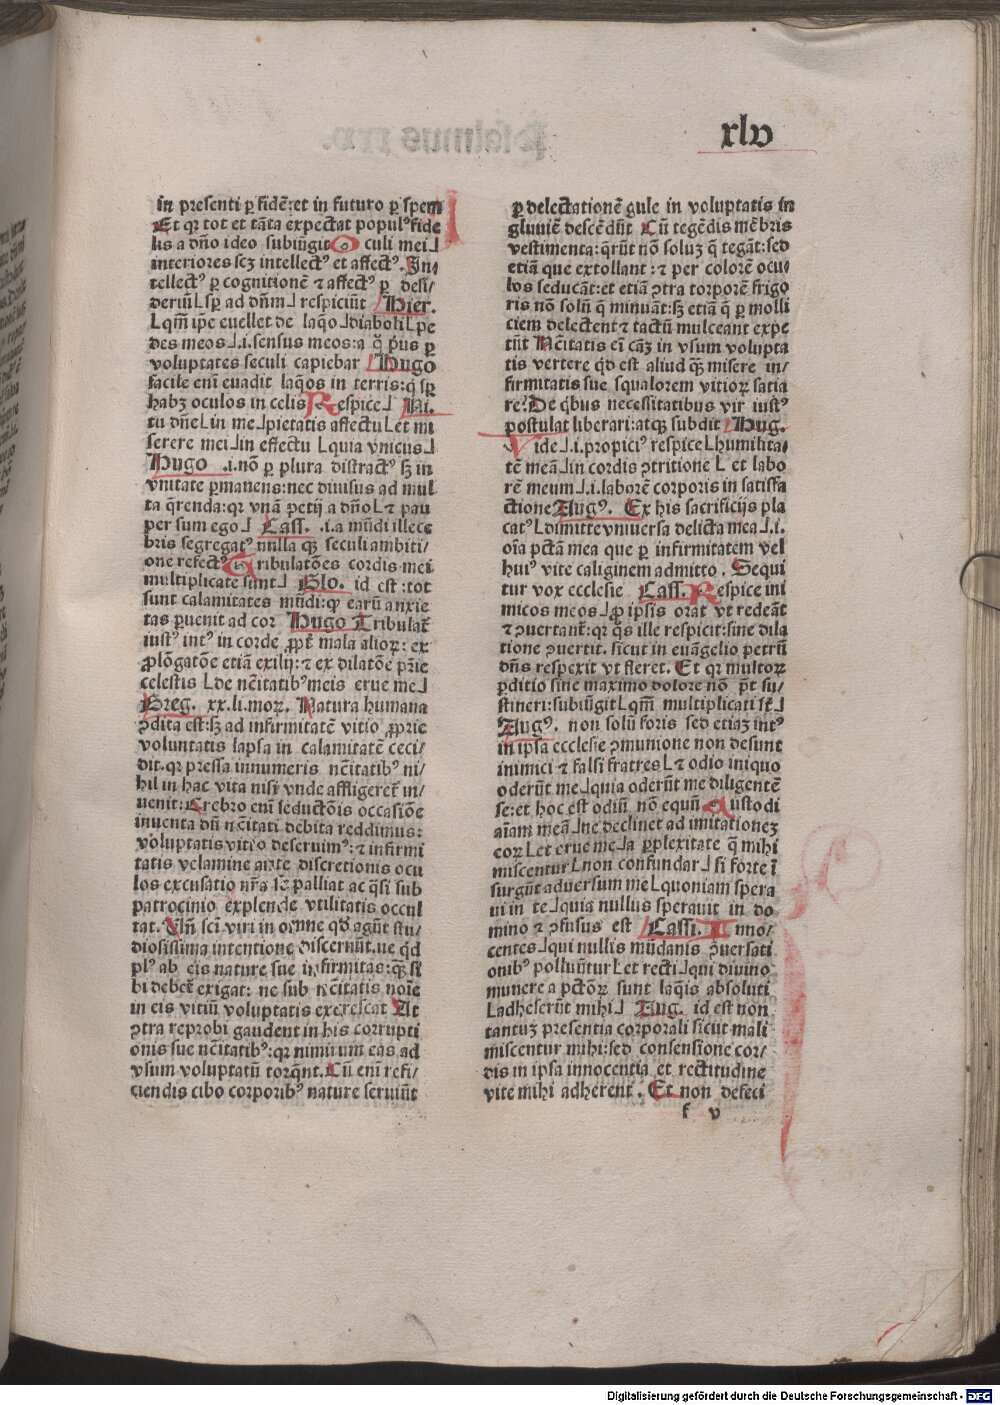 xlv
in presenti ꝑ fidē:et in futuro ꝑ spem
Et qꝛ tot et tāta expectat populꝰ fide
lis a dño ideo subiūgit Oculi mei⅃
interiores scꝫ intellectꝰ et affectꝰ. In⸗
tellectꝰ ꝑ cognitionē ⁊ affectꝰ ꝑ desi⸗
deriū⅃ sꝑ ad dñm⅃ respiciūt Hier.
Lqm̄ ip̄e euellet de laq̄o⅃diaboli Lpe
des meos⅃.i.sensus meos:a q̄ pꝰus ꝑ
voluptates seculi capiebar Hugo
facile enī euadit laq̄os in terris:q̄ sꝑ
habꝫ oculos in celis Respice⅃ Ni.
tu dñe Lin me⅃pietatis affectu Let mi
serere mei⅃in effectu Lquia vnicus⅃
Hugo .i.nō ꝑ plura distractꝰ sꝫ in
vnitate ꝑmanens:nec diuisus ad mul
ta q̄renda:qꝛ vnā petij a dño L⁊ pau
per sum ego⅃ Cass. .i.a mūdi illece
bris segregatꝰ nulla qꝫ seculi ambiti⸗
one refectꝰ Tribulatōes cordis mei
multiplicate sunt⅃ Glo. id est:tot
sunt calamitates mūdi:qꝫ earū anxie
tas ꝑuenit ad cor Hugo Tribulat̄
iustꝰ intꝰ in corde ꝓpt̄ mala alioꝝ: ex
ꝓlōgatōe etiā exilij:⁊ ex dilatōe pr̄ie
celestis Lde nc̄itatibꝰ meis erue me⅃
Greg. xx.li.moꝝ. Natura humana
ꝯdita est:sꝫ ad infirmitatē vitio ꝓprie
voluntatis lapsa in calamitatē ceci⸗
dit.qꝛ pressa innumeris nc̄itatibꝰ ni⸗
hil in hac vita nisi vnde affligeret̄ in⸗
uenit:Crebro enī seductōis occasiōe
inuenta dū nc̄itati debita reddimus:
voluptatis vitio deseruimꝰ:⁊ infirmi
tatis velamine ante discretionis ocu
los excusatio nr̄a se palliat ac q̄si sub
patrocinio explende vtilitatis occul
tat. Vn̄ sc̄i viri in omne qd̄ agūt stu⸗
diosissima intentione discernūt.ne q̄d
plꝰ ab eis nature sue infirmitas:qꝫ si
bi debet̄ exigat: ne sub nc̄itatis noīe
in eis vitiū voluptatis excrescat At
ꝯtra reprobi gaudent in his corrupti
onis sue nc̄itatibꝰ:qꝛ nimirum eas ad
vsum voluptatū torq̄nt.Cū enī refi⸗
ciendis cibo corporibꝰ nature seruiūt
ꝑ delectationē gule in voluptatis in
gluuiē descēdūt Cū tegēdis mēbris
vestimenta:q̄rūt nō soluꝫ q̄ tegāt:sed
etiā que extollant:⁊ per colorē ocu⸗
los seducāt:et etiā ꝯtra torporē frigo
ris nō solū q̄ minuāt:sꝫ etiā q̄ ꝑ molli
ciem delectent ⁊ tactū mulceant expe
tūt Nc̄itatis eī cāꝫ in vsum volupta
tis vertere qd̄ est aliud qꝫ misere in⸗
firmitatis sue squalorem vitioꝝ satia
re?De q̄bus necessitatibus vir iustꝰ
postulat liberari:atqꝫ subdit Hug.
Vide⅃.i.propiciꝰ respice Lhumilita⸗
tē meā⅃in cordis ꝯtritione L et labo
rē meum⅃.i.laborē corporis in satisfa
ctione Augꝰ. Ex his sacrificijs pla
catꝰ Ldimitte vniuersa delicta mea⅃.i.
oīa pctā mea que ꝑ infirmitatem vel
huiꝰ vite caliginem admitto . Sequi
tur vox ecclesie Cass. Respice ini
micos meos⅃ꝓ ipsis orat vt redeāt
⁊ ꝯuertant̄:qꝛ q̄s ille respicit:sine dila
tione ꝯuertit. sicut in euāgelio petrū
dñs respexit vt fleret. Et qꝛ multoꝝ
ꝑditio sine maximo dolore nō pōt su⸗
stineri:subiūgit Lqm̄ multiplicati st̄⅃
Augꝰ. non solū foris sed etiaꝫ intꝰ
in ipsa ecclesie ꝯmunione non desunt
inimici ⁊ falsi fratres L⁊ odio iniquo
oderūt me⅃quia oderūt me diligentē
se:et hoc est odiū nō equū Custodi
aīam meā⅃ne declinet ad imitationeꝫ
eoꝝ Let erue me⅃a ꝑplexitate q̄ mihi
miscentur Lnon confundar⅃ si forte ī
surgūt aduersum me Lquoniam spera
ui in te⅃quia nullus sperauit in do
mino ⁊ ꝯfusus est Cassi. Inno⸗
centes⅃qui nullis mūdanis ꝯuersati
onibꝰ polluūtur Let recti⅃qui diuino
munere a pctōꝝ sunt laq̄is absoluti
Ladheserūt mihi⅃ Aug. id est non
tantuꝫ presentia corporali sicut mali
miscentur mihi:sed consensione cor⸗
dis in ipsa innocentia et rectitudine
vite mihi adherent . Et non defeci
f v
Digitalisierung gefördert durch die Deutsche Forschungsgemeinschaft - DFG